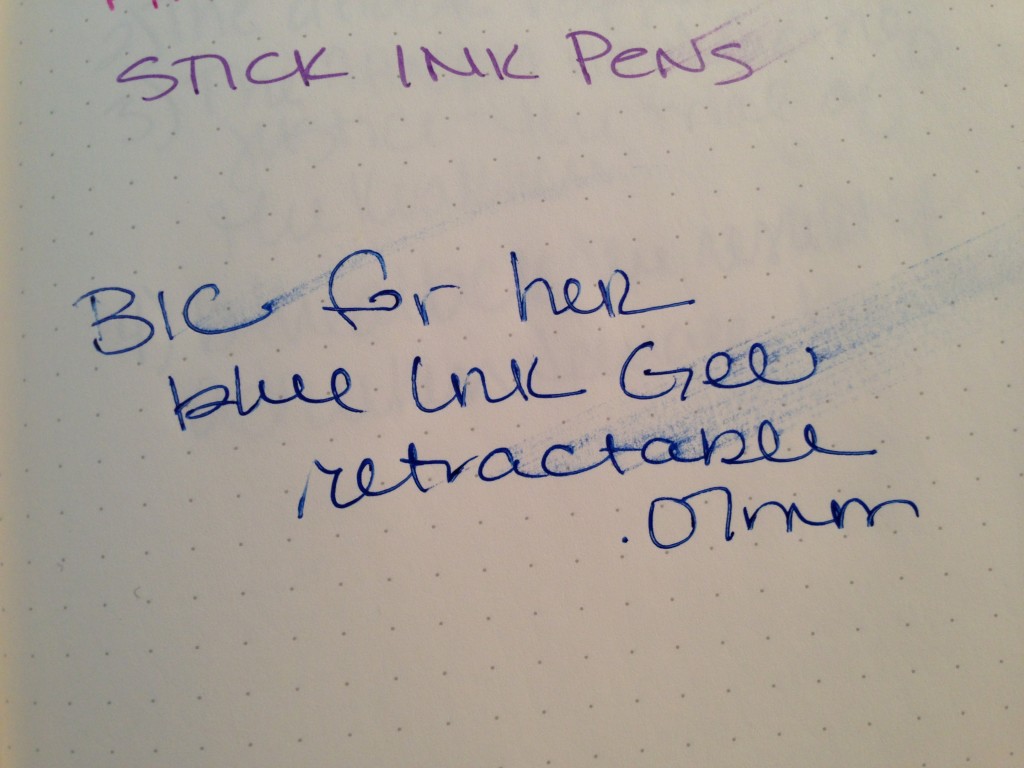 STICK INK PENS
BIC for her
blue ink Gel
retractable
.07mm